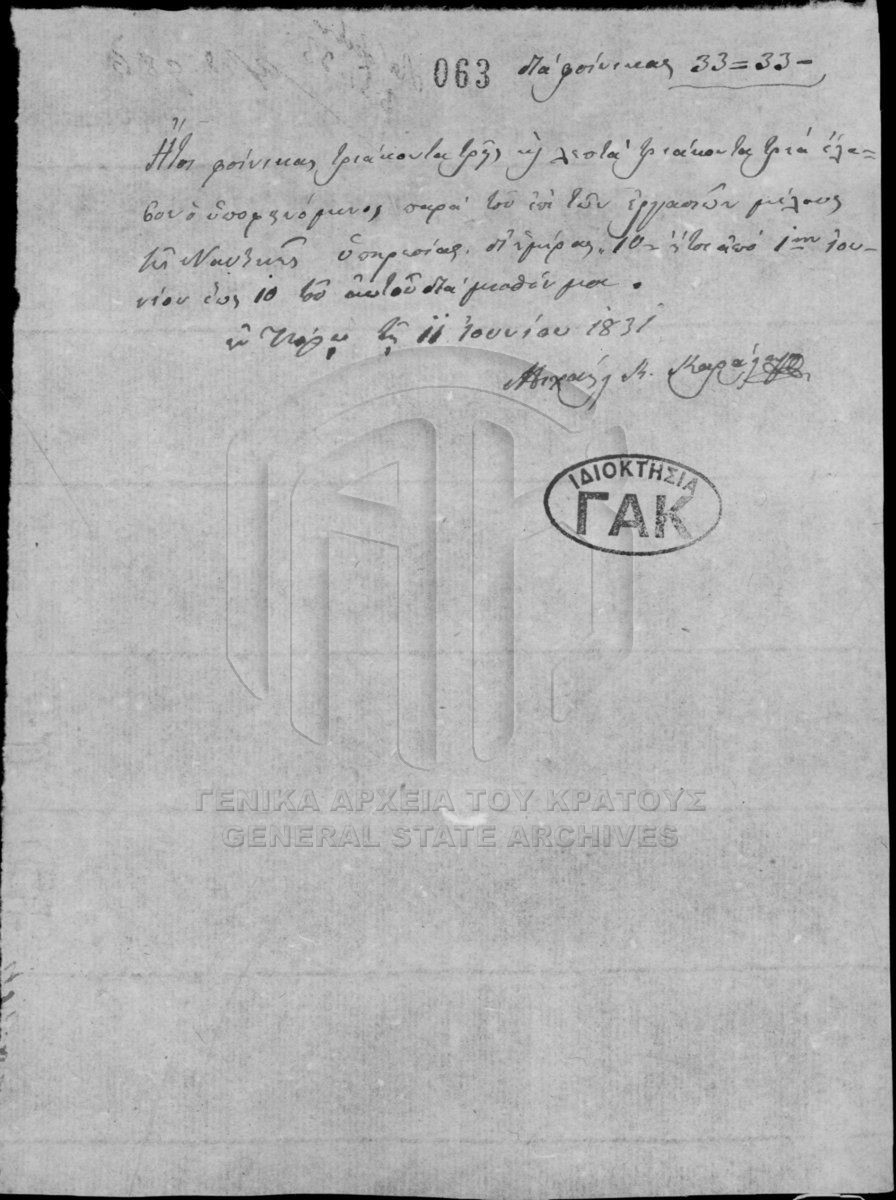 063 διά φοίνικας 33=33-
Ἤτοι φοίνικας τριάκοντα τρῆς κ λεπτά τριάκοντα τρία ἔλα=
βον ὁ ὑποφενόμενος παρά τοῦ ἐπί τῶν ἐργασιῶν μέλους
τῆς Ναυτικῆς ὑπηρεσίας. δι ἡμέρας 10 ἤτοι ἀπό 1ην ἰου=
νίου ἑως 10 τοῦ αὐτοῦ διά μισθόν μου.
ἐν Πόρῳ τῇ 11 Ἰουνίου 1831
Μιχαήλ Κ.
ΙΔΙΟΚΤΗΣΙΑ
ΓΑΚ
ΓΕΝΙΚΑ ΑΡΧΕΙΑ ΤΟΥ ΚΡΑΤΟΥΣ
GENERAL STATE ARCHIVES